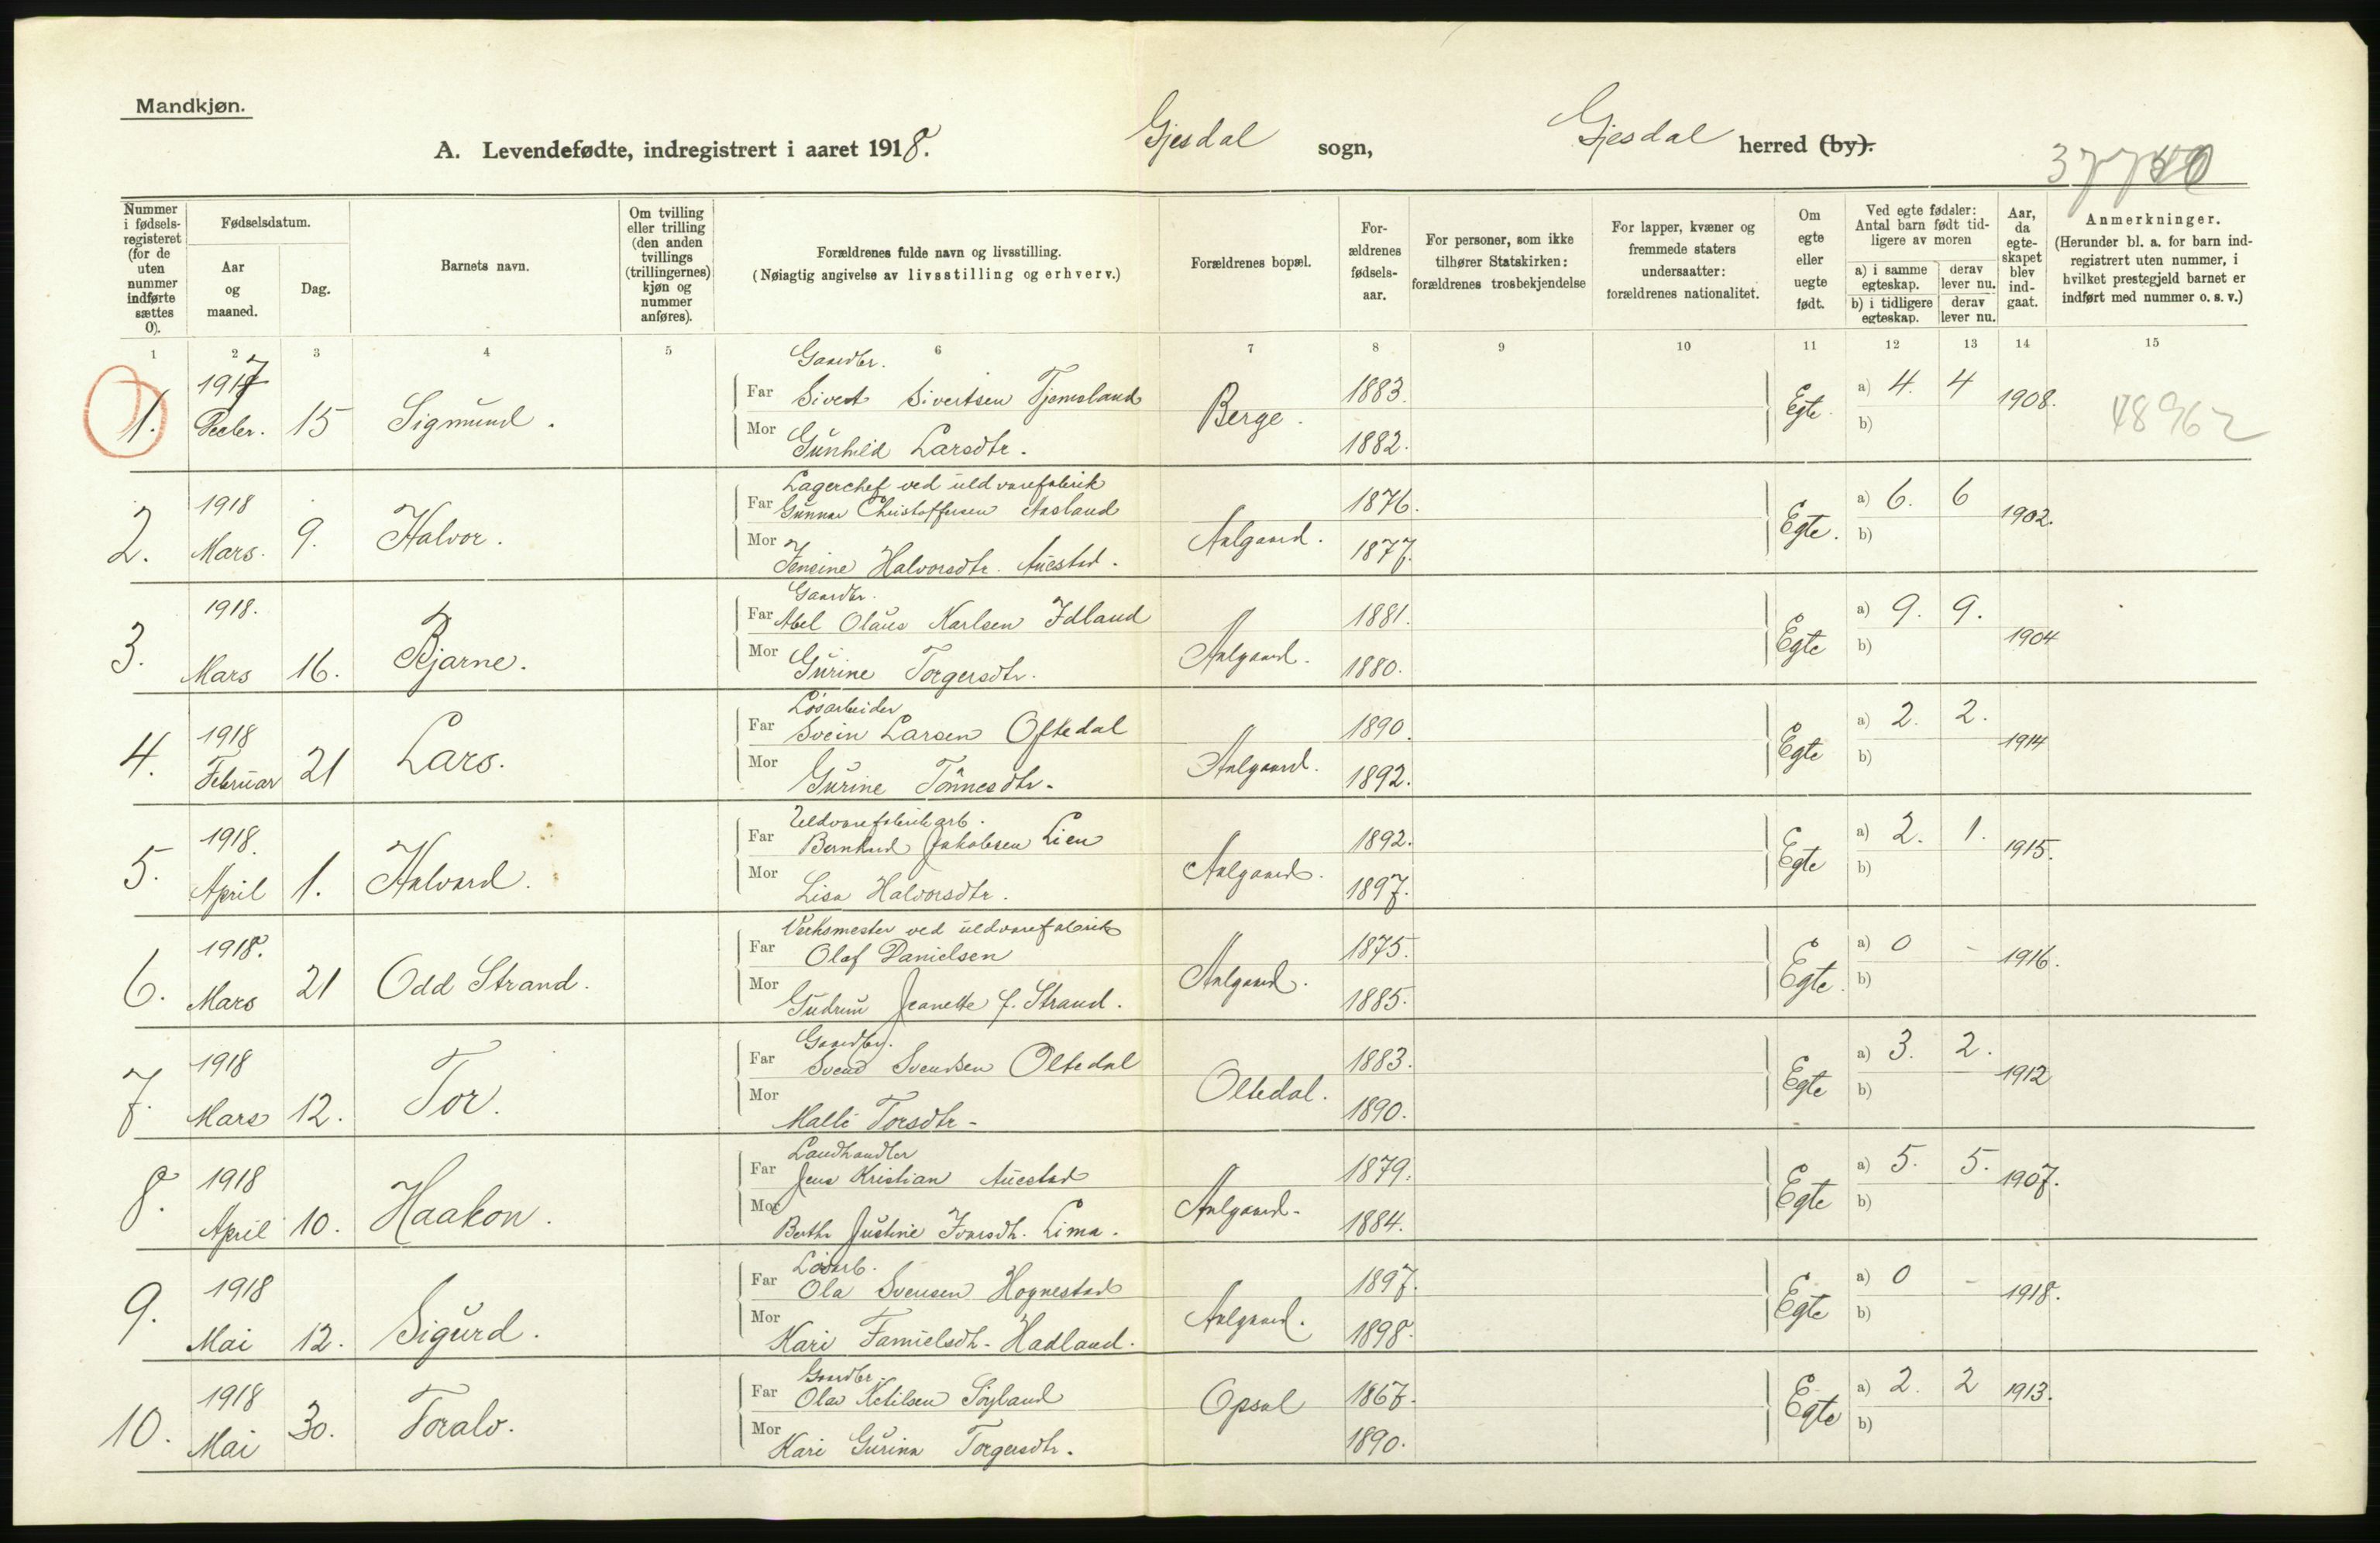 Mandkjøn.
A. Levendefødte, indregistrert i aaret 1918. Gjesdal sogn, Gjesdal herred (by).
Nummer i fødsels-registeret (for de uten nummer indførte sættes 0).
Fødselsdatum.
Aar og maaned.
Dag.
Barnets navn.
Om tvilling eller trilling (den anden tvillings (trillingernes) kjøn og nummer anføres).
Forældrenes fulde navn og livsstilling.
(Nøiagtig angivelse av livsstilling og erhverv.)
Forældrenes bopæl.
For-ældrenes fødsels-aar.
For personer, som ikke tilhører Statskirken: forældrenes trosbekjendelse
For lapper, kvæner og fremmede staters undersaatter: forældrenes nationalitet.
Om egte eller uegte født.
Ved egte fødsler: Antal barn født tid-ligere av moren
a) i samme egteskap. derav lever nu.
b) i tidligere egteskap. derav lever nu.
Aar, da egte-skapet blev ind-gaat.
Anmerkninger.
(Herunder bl. a. for barn ind-registrert uten nummer, i hvilket prestegjeld barnet er indført med nummer o. s. v.)
1 2 3 4 5 6 7 8 9 10 11 12 13 14 15
Gaardbr.
1. 1917 Decbr. 15 Sigmund. Far Sivert Sivertsen Tjemsland Berge. 1883. Egte a) 4. 4 1908. 48962
Mor Gunhild Larsdtr. 1882. b)
Lagerchef ved uldvarefabrik
2. 1918 Mars. 9. Halvor. Far Gunnar Christoffersen Aasland Aalgaard. 1876. Egte. a) 6. 6 1902.
Mor Jensine Halvorsdtr. Auestad. 1877. b)
Gaardbr.
3. 1918. Mars 16. Bjarne. Far Abel Olaus Karlsen Idland Aalgaard. 1881. Egte a) 9. 9. 1904
Mor Gurine Torgersdtr. 1880. b)
Løsarbeider
4. 1918 Februar 21 Lars. Far Svein Larsen Oftedal Aalgaard. 1890. Egte a) 2. 2. 1914
Mor Gurine Tönnesdtr. 1892. b)
Uldvarefabrikarb.
5. 1918. April 1. Halvard. Far Bernhard Jakobsen Lien Aalgaard. 1892. Egte a) 2. 1. 1915.
Mor Lisa Halvorsdtr. 1897. b)
Verksmester ved uldvarefabrik
6. 1918. Mars 21 Odd Strand. Far Olaf Danielsen Aalgaard. 1875. Egte. a) 0 - 1916.
Mor Gudrun Jeanette f. Strand. 1885. b)
7. 1918 Mars 12. Tor. Far Svend Svendsen Oltedal Oltedal. 1883. Egte a) 3. 2. 1912
Mor Malli Torsdtr. 1890. b)
Landhandler
8. 1918 April 10. Haakon. Far Jens Kristian Auestad Aalgaard. 1879. Egte a) 5. 5. 1907.
Mor Berthe Justine Ivarsdtr. Lima. 1884. b)
Løsarb.
9. 1918 Mai 12. Sigurd. Far Ola Svensen Hognestad Aalgaard. 1897. Egte a) 0 - 1918.
Mor Kari Hadland. 1898. b)
Gaardbr.
10. 1918 Mai 30. Toralv. Far Olav Ketilsen Opsal 1867. Egte a) 2. 2 1913.
Mor Kari Gurina Torgersdtr. 1890. b)